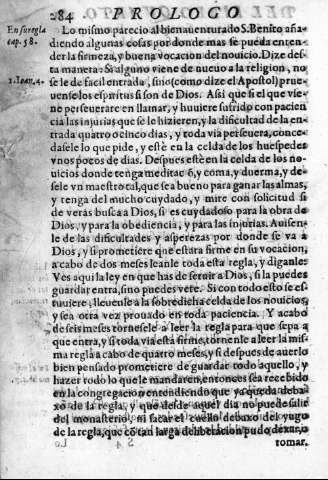 284 PROLOGO
En su regla
cap. 58.
1. Ioan. 4.
Lo mismo parecio al bienauenturado S. Benito aña-
diendo algunas cosas por donde mas se pueda enten-
der la firmeza, y buena vocacion del nouicio. Dize des-
ta manera: Si alguno viene de nueuo a la religion, no
se le de facil entrada, sino (como dize el Apostol) prue-
uense los espiritus si son de Dios. Assi que si el que vie-
ne perseuerare en llamar, y huuiere sufrido con pacien
cia las injurias que se le hizieren, y la dificultad de la en-
trada quatro o cinco dias, y toda via perseuera, conce-
dasele lo que pide, y estè en la celda de los huespedes
vnos pocos de dias. Despues estè en la celda de los no-
uicios donde tenga meditaciõ, y coma, y duerma, y de-
sele vn maestro tal, que sea bueno para ganar las almas,
y tenga del mucho cuydado, y mire con solicitud si
de verás busca a Dios, si es cuydadoso para la obra de
Dios, y para la obediencia, y para las injurias. Auisen-
le de las dificultades y asperezas por donde se va a
Dios, y si prometiere que estara firme en su vocacion,
a cabo de dos meses leanle toda esta regla, y diganle:
Ves aqui la ley en que has de seruir a Dios, si la puedes
guardar entra, sino puedes vete. Si con todo esto se es-
tuuiere, lleuenle a la sobredicha celda de los nouicios,
y sea otra vez prouado en toda paciencia. Y acabo
de seis meses tornesele a leer la regla para que sepa a
que entra, y si toda via està firme, tornenle a leer la mis-
ma regla a cabo de quatro meses, y si despues de auerlo
bien pensado prometiere de guardar todo aquello, y
hazer todo lo que le mandaren, entonces sea recebido
en la congregacion entendiendo que ya queda deba-
xo de la regla, y que desde aquel dia no puede salir
del monasterio, ni sacar el cuello debaxo del yugo
de la regla, que cõ tan larga deliberacion pudo dexar, o
tomar.